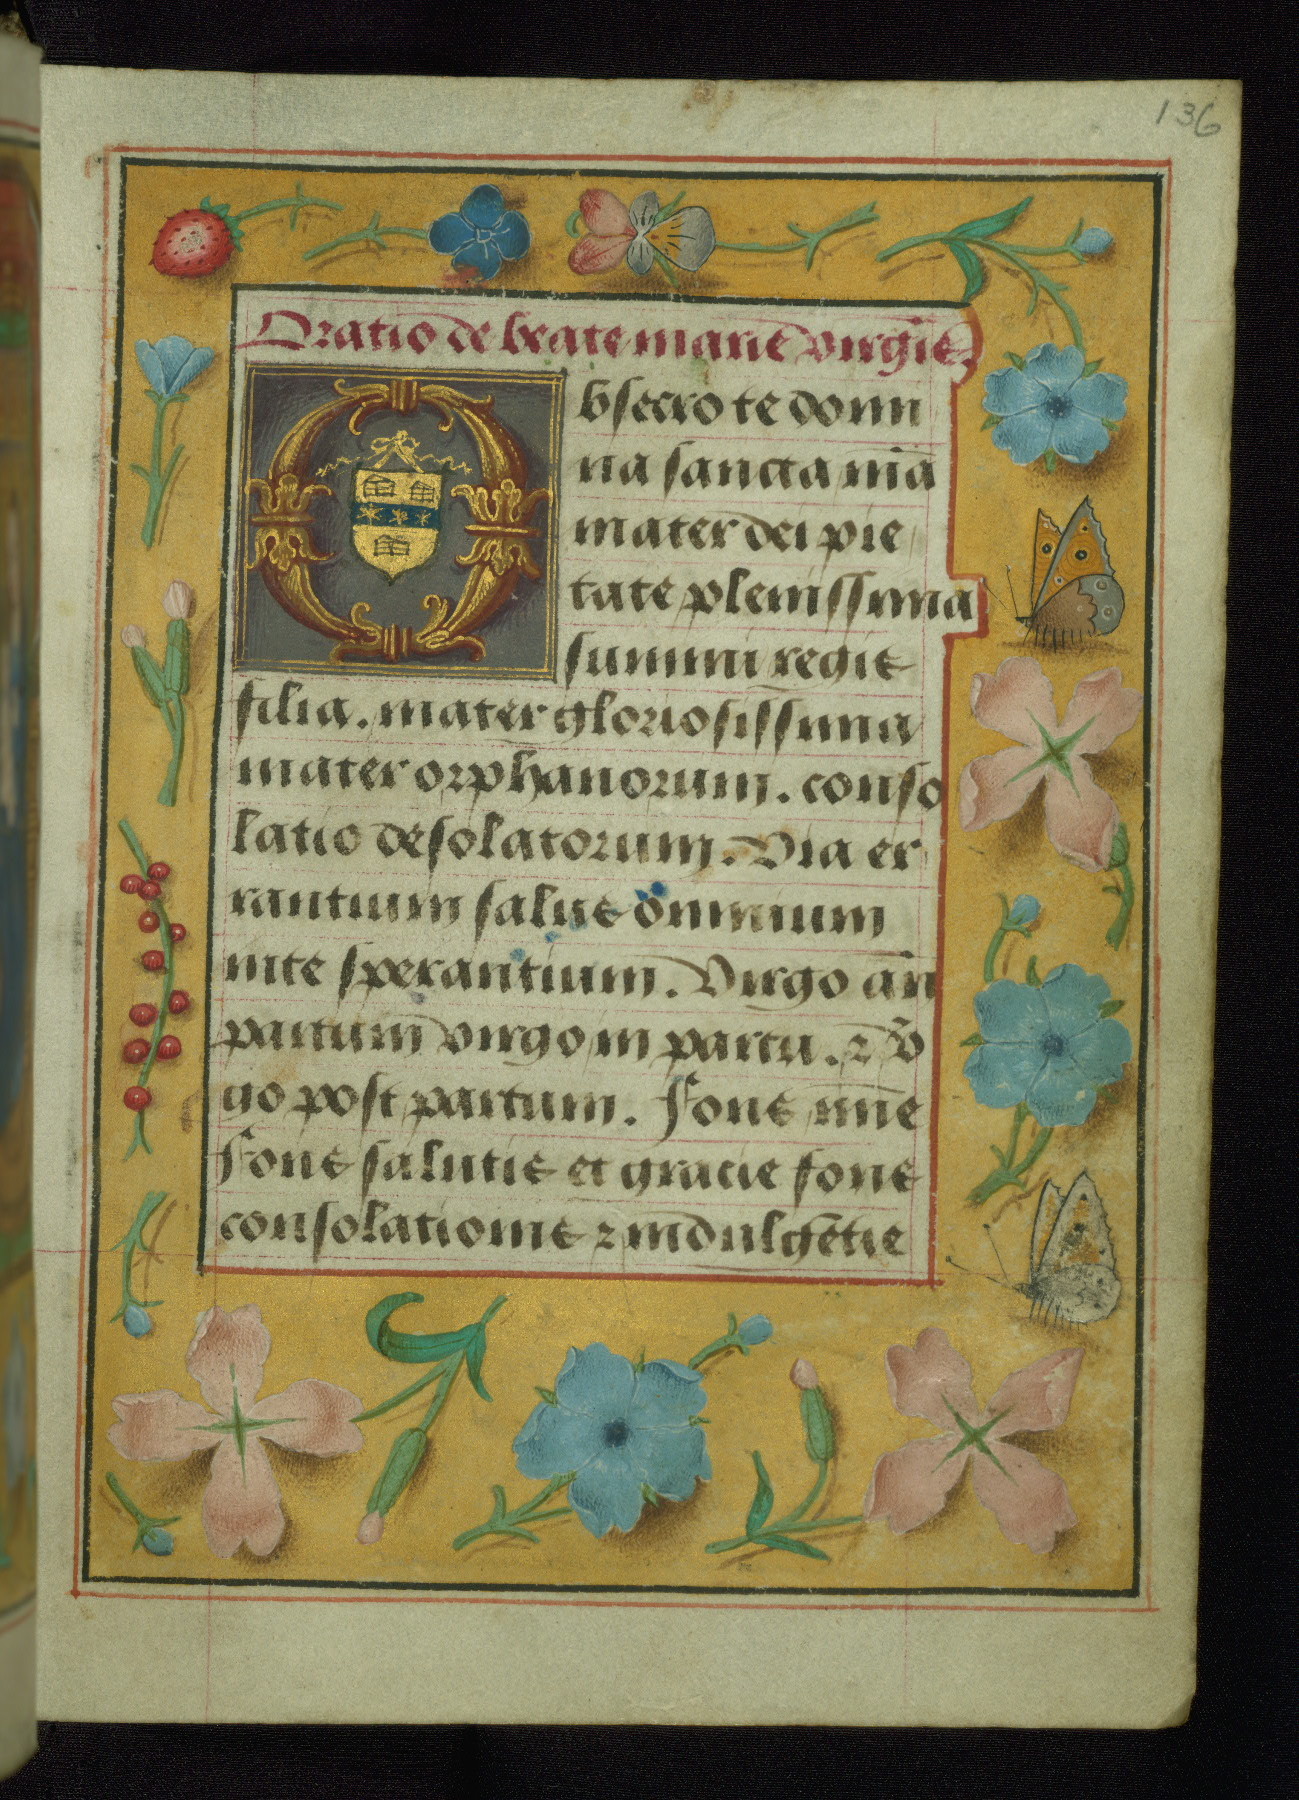 136
Oratio de beate marie virgīe.
Obsecro te domi
na sancta mīa
mater dei pie
tate plenissima
summi regis
filia. mater gloriosissima
mater orphanorum. conso
latio desolatorum. Via er
rantium salus omnium
in te sperantium. Virgo añ
partum virgo in partu. ⁊ v̄
go post partum. Fons mīe
Fons salutis et gracie fons
consolationis ⁊ indulgētie